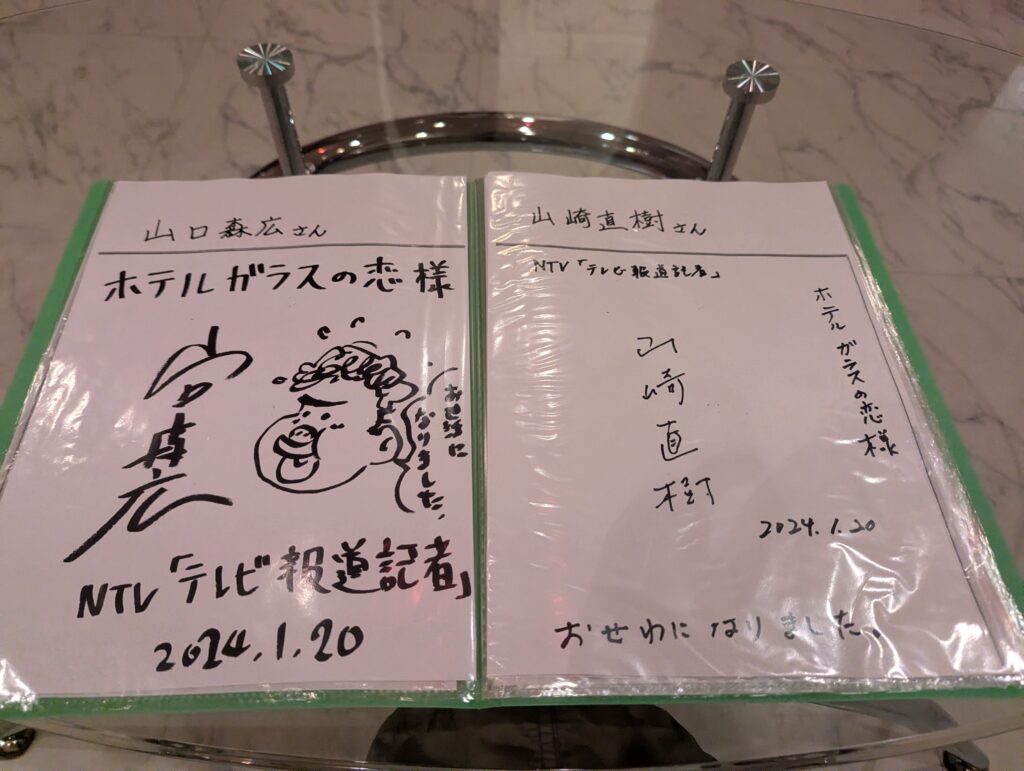 山口森広さん
ホテルガラスの恋様
山口森広
お世話に
なりました。
NTV「テレビ報道記者」
2024.1.20
山崎直樹さん
NTV「テレビ報道記者」
ホテルガラスの恋様
山崎直樹
2024.1.20
おせわになりました。